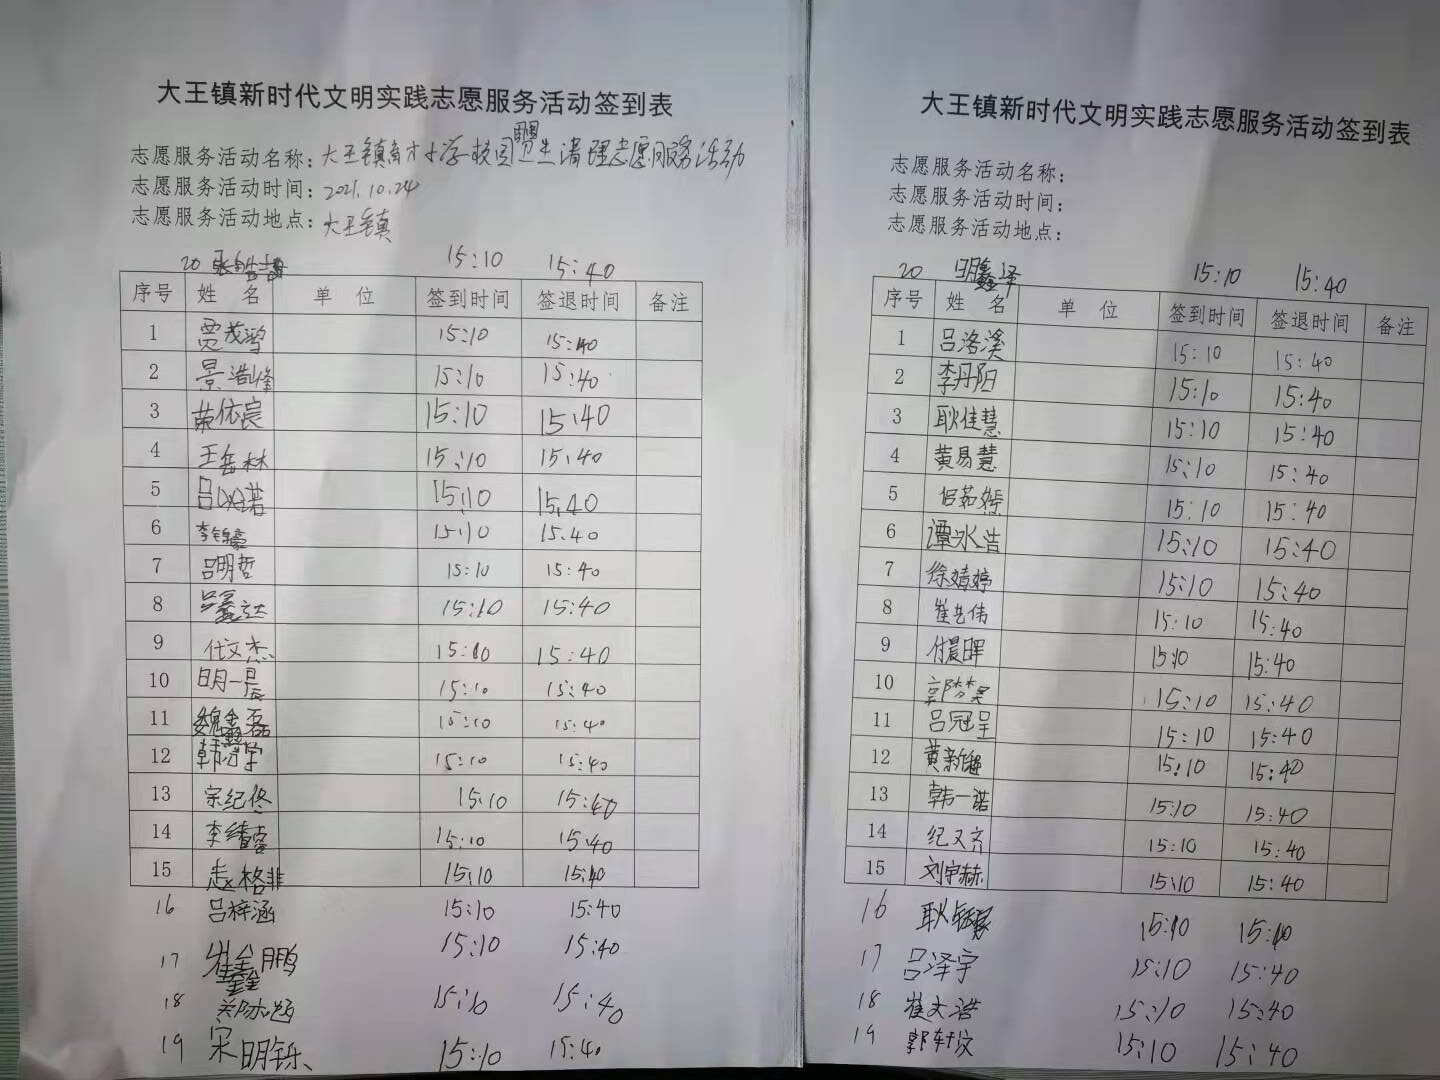 大王镇新时代文明实践志愿服务活动签到表
志愿服务活动名称：大王镇育才小学校园卫生清理志愿服务活动
志愿服务活动时间：2021.10.24
志愿服务活动地点：大王镇
20 15:10 15:40
序号 姓 名 单 位 签到时间 签退时间 备注
1 贾茂鸿 15:10 15:40
2 景浩峰 15:10 15:40
3 荣依宸 15:10 15:40
4 王岳林 15:10 15:40
5 吕 诺 15:10 15:40
6 李锦豪 15:10 15:40
7 吕明哲 15:10 15:40
8 吕鑫达 15:10 15:40
9 代文杰 15:10 15:40
10 明一晨 15:10 15:40
11 魏鑫磊 15:10 15:40
12 韩 15:10 15:40
13 宗纪佟 15:10 15:40
14 李 15:10 15:40
15 赵格非 15:10 15:40
16 吕梓涵 15:10 15:40
17 崔鑫鹏 15:10 15:40
18 15:10 15:40
19 宋明铄 15:10 15:40
大王镇新时代文明实践志愿服务活动签到表
志愿服务活动名称：
志愿服务活动时间：
志愿服务活动地点：
20 明鑫泽 15:10 15:40
序号 姓 名 单 位 签到时间 签退时间 备注
1 吕洛溪 15:10 15:40
2 李丹阳 15:10 15:40
3 耿佳慧 15:10 15:40
4 黄易慧 15:10 15:40
5 茹嫣 15:10 15:40
6 谭冰浩 15:10 15:40
7 徐婧婷 15:10 15:40
8 崔艺伟 15:10 15:40
9 付晨晖 15:10 15:40
10 郭梦昊 15:10 15:40
11 吕冠呈 15:10 15:40
12 黄新 15:10 15:40
13 韩一诺 15:10 15:40
14 纪又齐 15:10 15:40
15 刘宇赫 15:10 15:40
16 耿 15:10 15:40
17 吕泽宇 15:10 15:40
18 崔文浩 15:10 15:40
19 郭轩汶 15:10 15:40